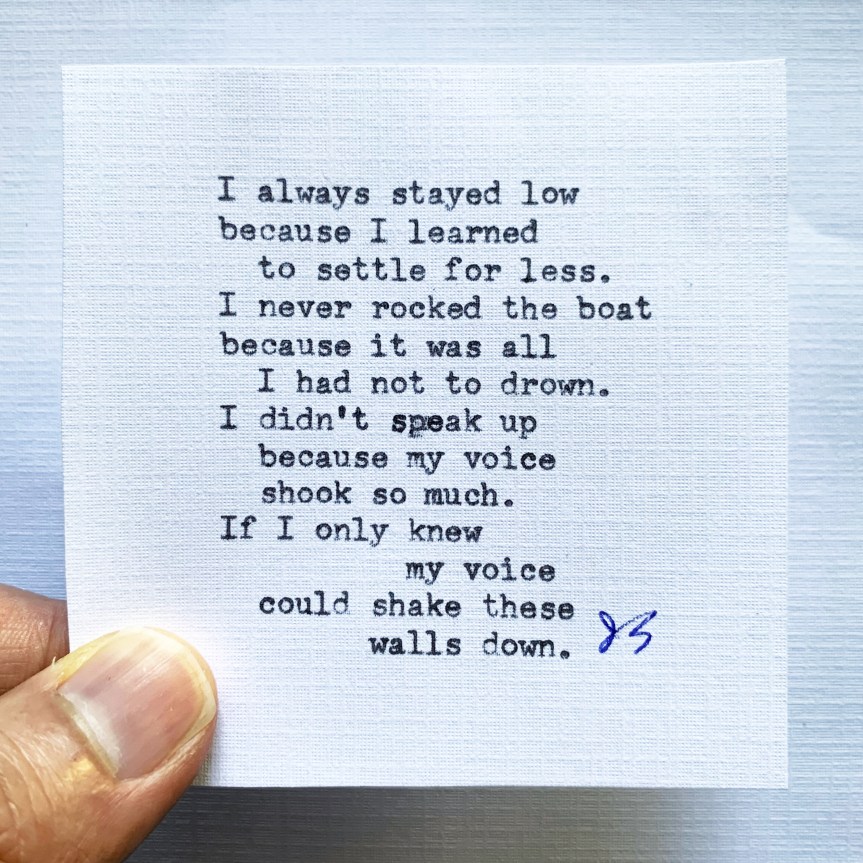 I always stayed low
because I learned
to settle for less.
I never rocked the boat
because it was all
I had not to drown.
I didn't speak up
because my voice
shook so much.
If I only knew
my voice
could shake these
walls down.